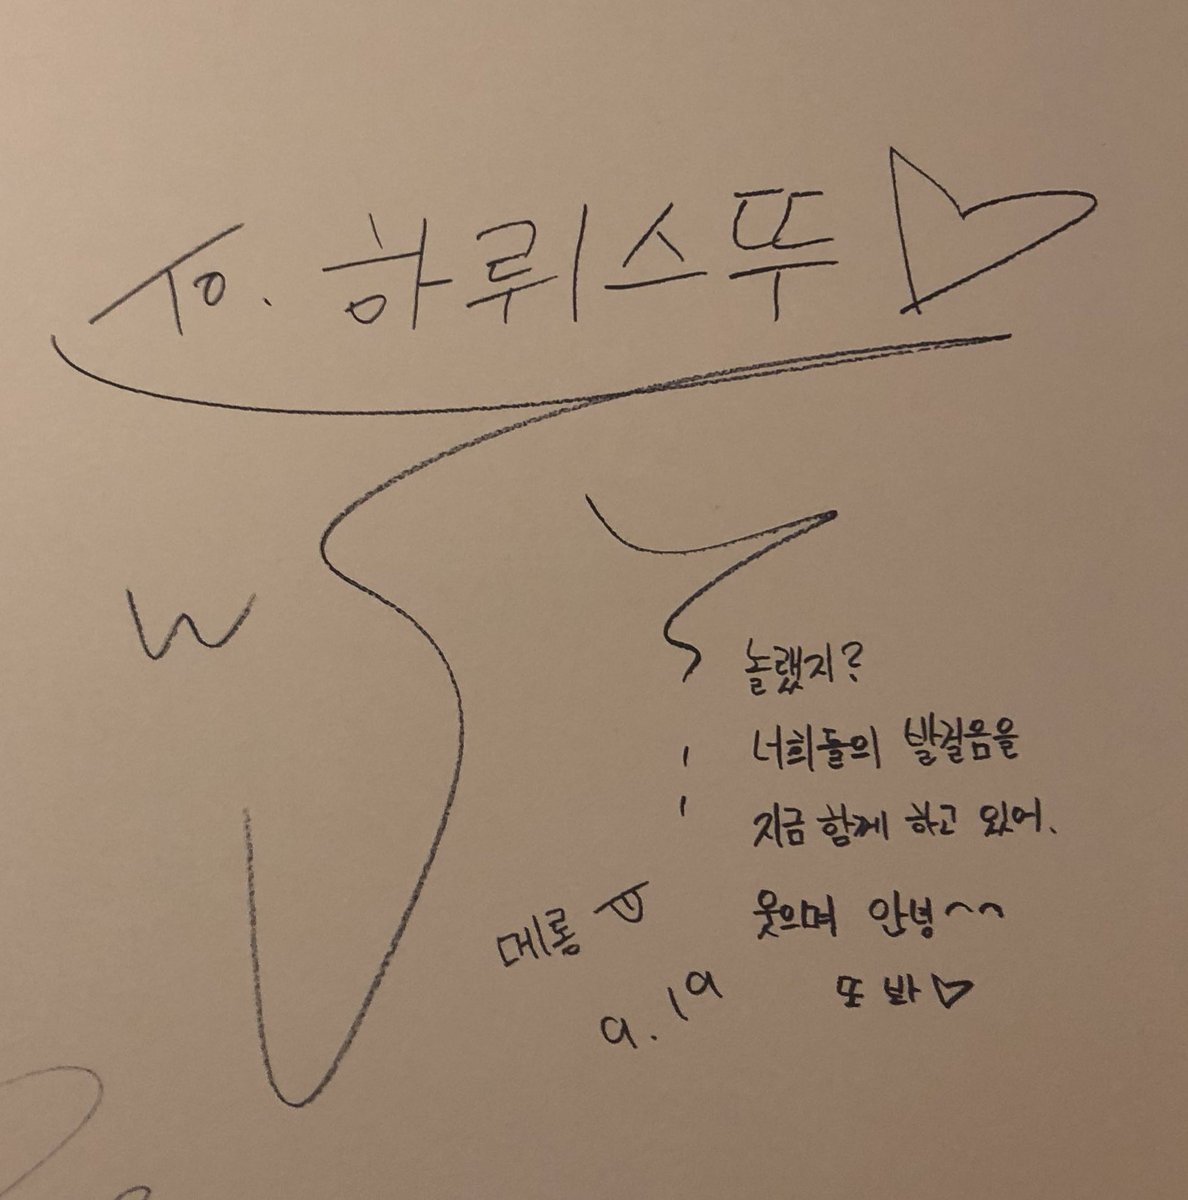 To. 하뤼스뚜 ♡
W
놀랬지?
너희들의 발걸음을
지금 함께 하고 있어.
웃으며 안녕^^
또 봐♡
메롱
9.19